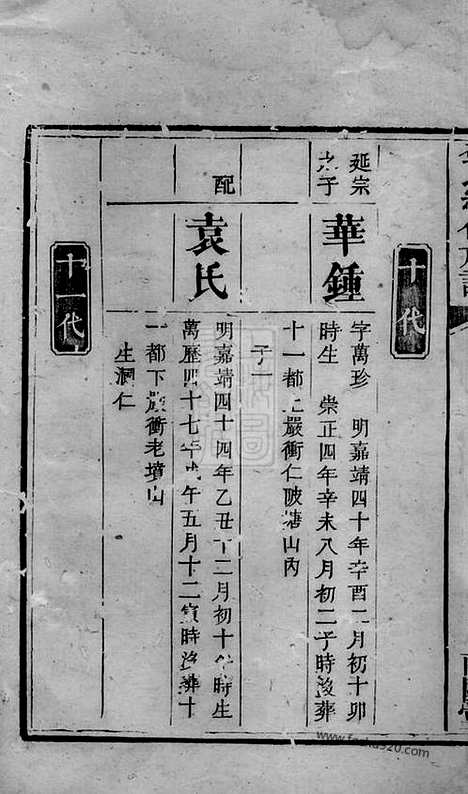 十代
延宗
之子
華鍾
字萬珍 明嘉靖四十年辛酉二月初十卯
時生 崇正四年辛未八月初二子時没葬
十一都上嚴衝仁陂塘山內
子一
配
袁氏
明嘉靖四十四年乙丑十二月初十午時生
萬歷四十七年戊午五月十二寅時没葬十
一都下嚴衝老墳山
生洞仁
十一代
www.fozhu920.com